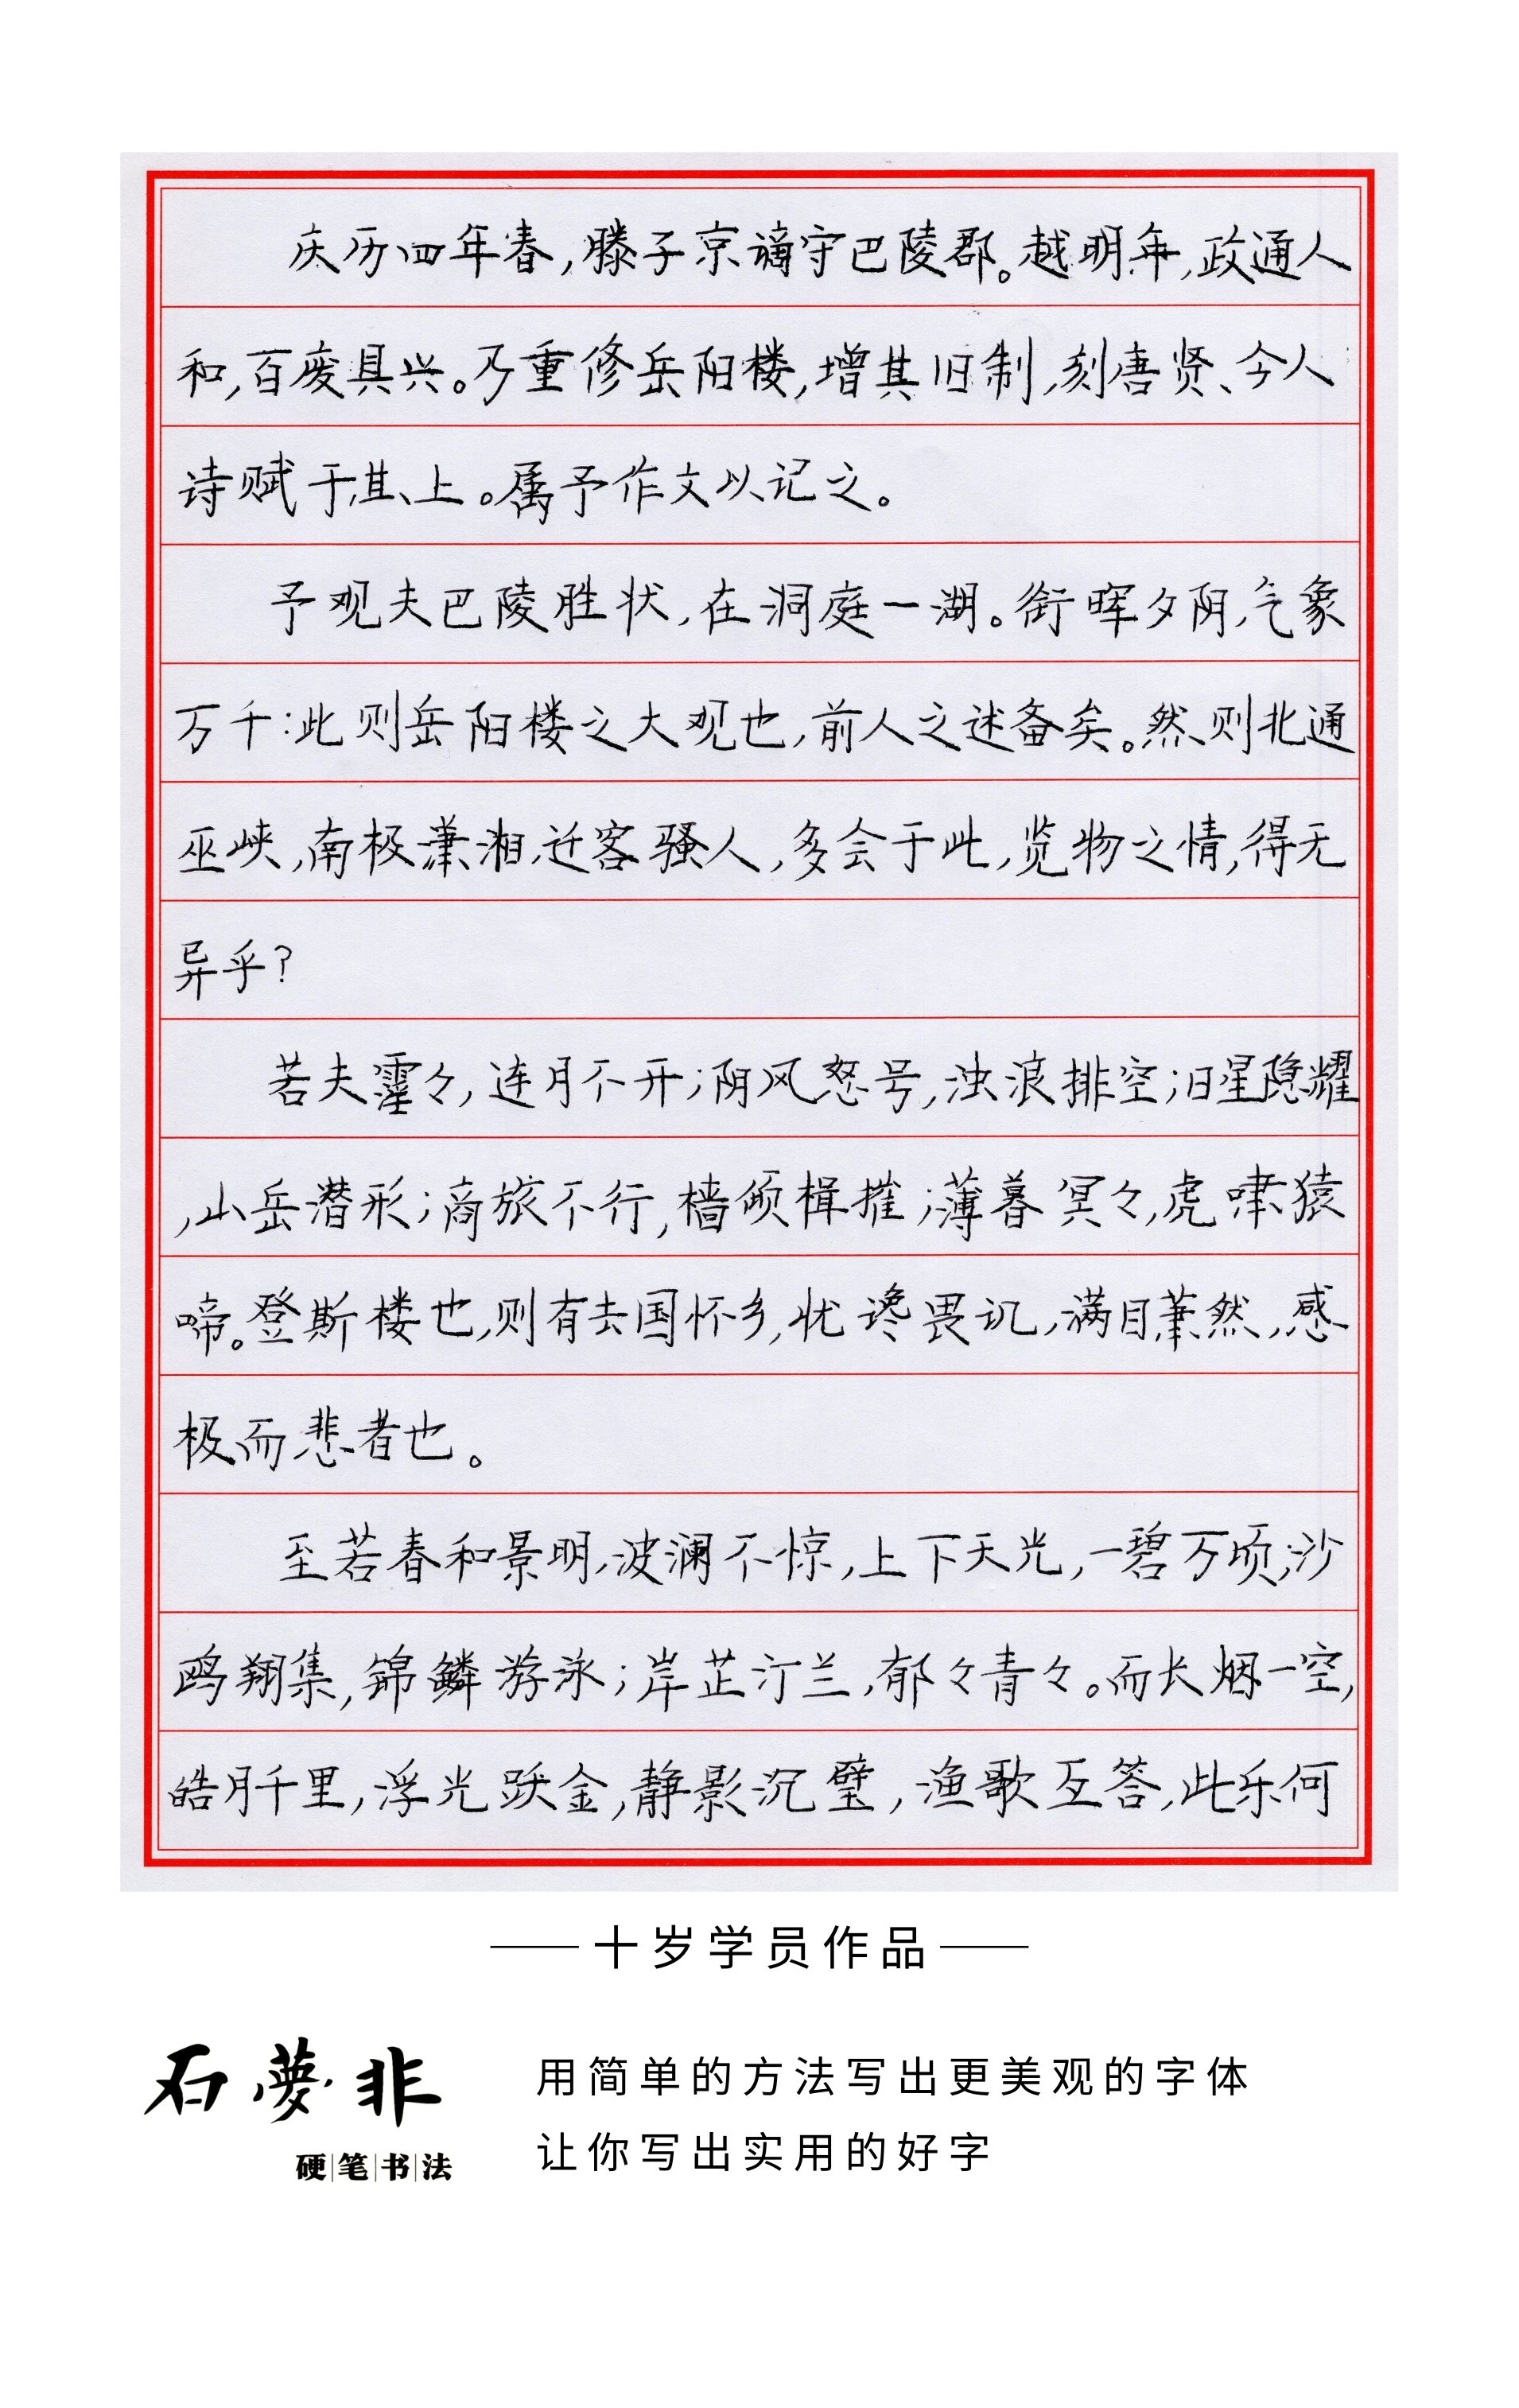 庆历四年春,滕子京谪守巴陵郡。越明年,政通人
和,百废具兴。乃重修岳阳楼,增其旧制,刻唐贤、今人
诗赋于其上。属予作文以记之。
予观夫巴陵胜状,在洞庭一湖。衔晖夕阴,气象
万千:此则岳阳楼之大观也,前人之述备矣。然则北通
巫峡,南极潇湘,迁客骚人,多会于此,览物之情,得无
异乎?
若夫霪々,连月不开;阴风怒号,浊浪排空;日星隐耀
,山岳潜形;商旅不行,樯倾楫摧;薄暮冥々,虎啸猿
啼。登斯楼也,则有去国怀乡,忧谗畏讥,满目萧然,感
极而悲者也。
至若春和景明,波澜不惊,上下天光,一碧万顷;沙
鸥翔集,锦鳞游泳;岸芷汀兰,郁々青々。而长烟一空,
皓月千里,浮光跃金,静影沉璧,渔歌互答,此乐何
十岁学员作品
石夢非
硬笔书法
用简单的方法写出更美观的字体
让你写出实用的好字